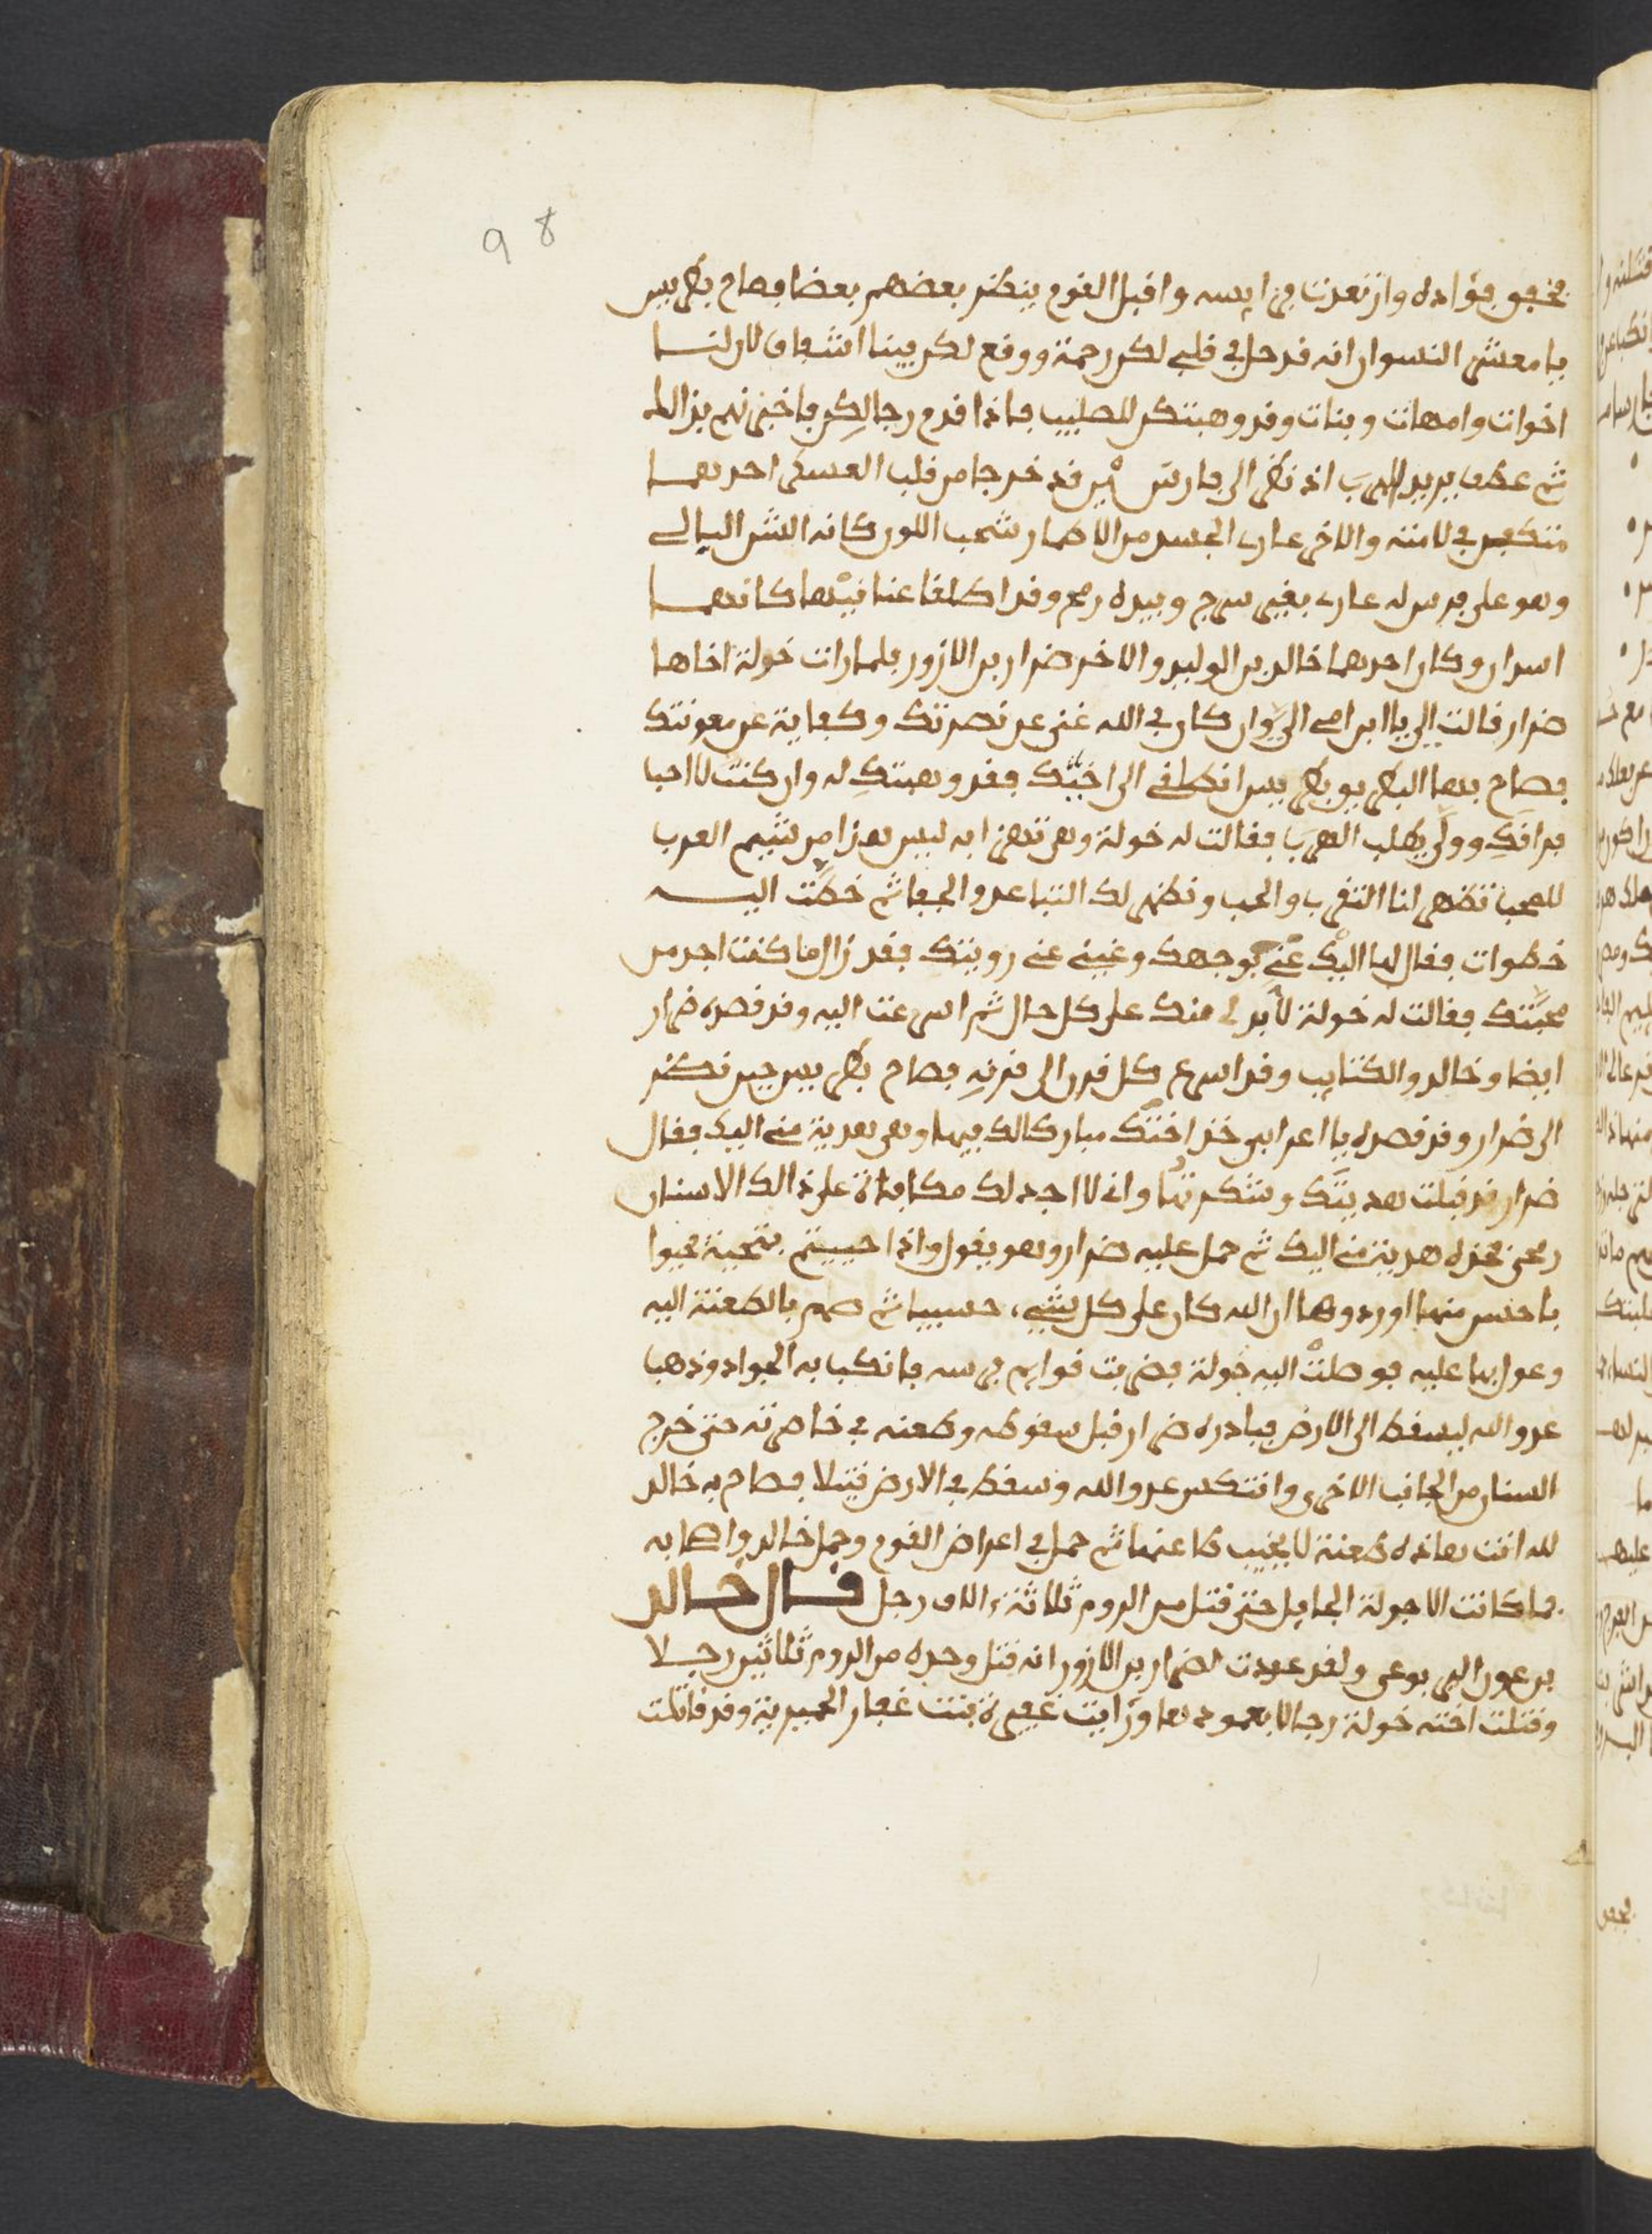 98
فخفق فؤاده وارتعدت فرايسه واقبل القوم ينظر بعضهم بعضا فصاح بطريس
يا معشر النسوان انه قد حل في قلبي لكن رحمة ووقع لكن فينا اشفاق لان لنا
اخوات وامهات وبنات وقد وهبتكن للصليب فاذا قدم رجالكن فاخبرنهم بذالك
ثم عطف يريد الهرب اذ نظر الى فارسين قد خرجا من قلب العسكر احدهما
متكفن في لامته والاخر عاري الجسد من الاطمار شحب اللون كانه الشن البالي
وهو على فرس له عاري بغير سرج وبيده رمح وقد اطلقا عنانيهما كانهما
اسدان وكان احدهما خالد بن الوليد والاخر ضرار بن الازور فلما رات خولة اخاها
ضرار قالت الي يا ابن امي الي وان كان في الله غنى عن نصرتك وكفاية عن معونتك
فصاح بها البطريق بطريس انطلقي الى اخيك فقد وهبتك له وان كنت لا احب
فراقك وولى يطلب الهرب فقالت له خولة وهي تهزا به ليس هذا من شيم العرب
للمحبا تظهر لنا التقرب والحب وتظهر لك التباعد والجفا ثم خطت اليه
خطوات فقال لها اليك عني بوجهك وغيبي عني رويتك فقد زال ما كنت اجد من
محبتك فقالت له خولة لابد لي منك على كل حال ثم اسرعت اليه وقد قصده ضرار
ايضا وخالد والكتايب وقد اسرع كل قرن الى قرنه فصاح بطريس حين نظر
الى ضرار وقد قصده يا اعرابي خذ اختك مبارك لك فيها وهي هدية مني اليك فقال
ضرار قد قبلت هديتك وشكرتها واني لا اجد لك مكافاة على ذالك الا سنان
رمحي فخذه هدية مني اليك ثم حمل عليه ضرار وهو يقول واذا حييتم بتحية فحيوا
باحسن منها او ردوها ان الله كان على كل شيء حسيبا ثم صمم بالطعنة اليه
وعول بها عليه فوصلت اليه خولة فضربت قوايم فرسه فانكبا به الجواد وذهبا
عدو الله ليسقط الى الارض فبادره ضرار قبل سقوطه وطعنه في خاصرته حتى خرج
السنان من الجانب الاخر وانتكس عدو الله وسقط في الارض قتيلا فصاح به خالد
لله انت هاذه طعنة لا يخيب طاعنها ثم حمل في اعراض القوم وحمل خالد واصحابه
فما كانت الا جولة الجايل حتى قتل من الروم ثلاثة الاف رجل قال خالد
بن عور اليربوعي ولقد عددت لضرار بن الازور انه قتل وحده من الروم ثلاثين رجلا
وقتلت اخته خولة رجالا بعمودها ورايت غفيرة بنت غفار الحميرية وقد قاتلت